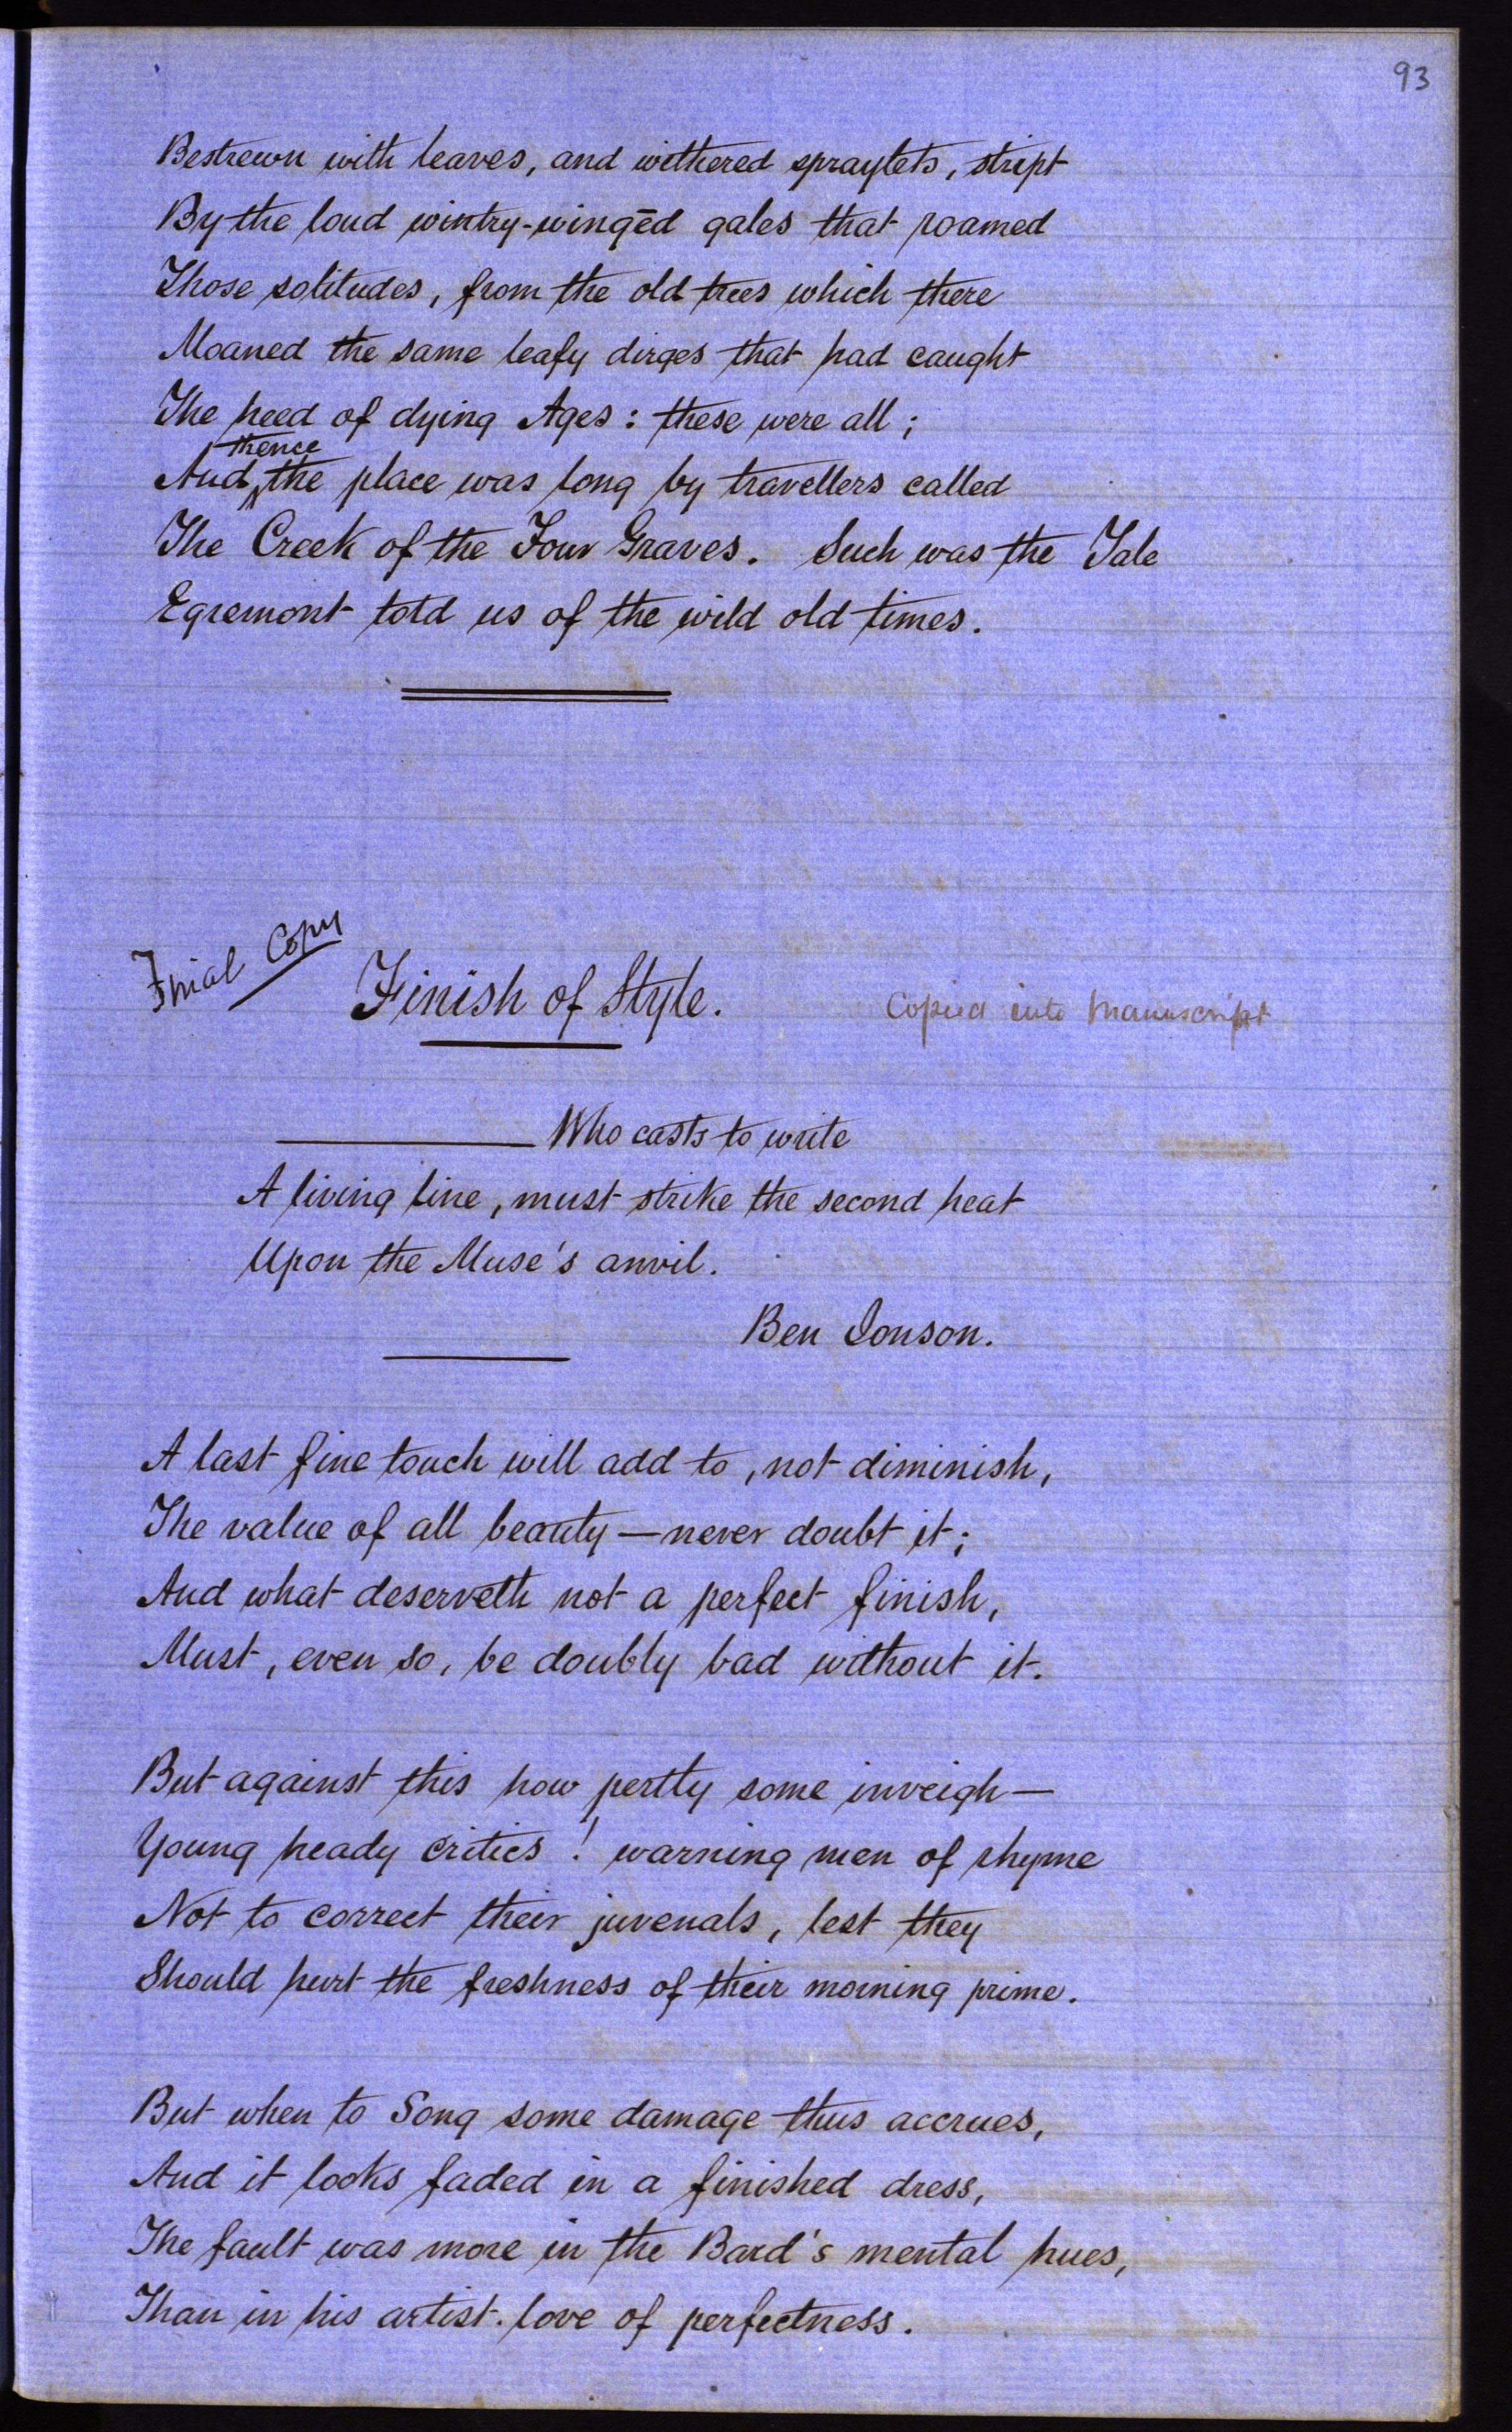 93
Bestrewn with leaves, and withered spraylets, stript
By the loud wintry-wingēd gales that roamed
Those solitudes, from the old trees which there
Moaned the same leafy dirges that had caught
The heed of dying Ages: these were all;
thence
And ‸ the place was long by travellers called
The Creek of the Four Graves. Such was the Tale
Egremont told us of the wild old times.
Final Copy
Finish of Style.
Copied into Manuscript
Who casts to write
A living line, must strike the second heat
Upon the Muse's anvil.
Ben Jonson.
A last fine touch will add to, not diminish,
The value of all beauty—never doubt it;
And what deserveth not a perfect finish,
Must, even so, be doubly bad without it.
But against this how pertly some inveigh—
Young heady critics! warning men of rhyme
Not to correct their juvenals, lest they
Should hurt the freshness of their morning prime.
But when to Song some damage thus accrues,
And it looks faded in a finished dress,
The fault was more in the Bard's mental hues,
Than in his artist-love of perfectness.